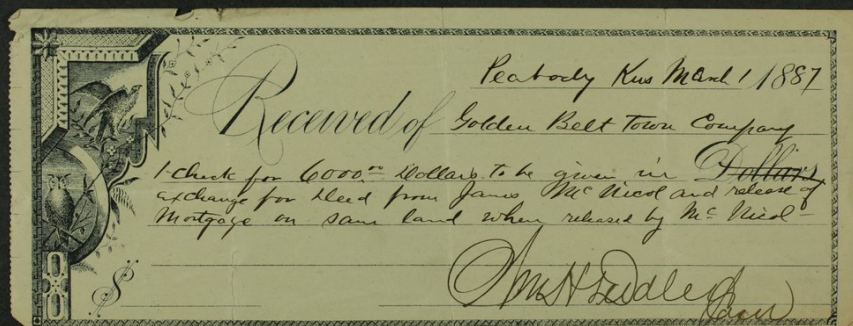 Peabody Kns March 1 1887
Received of Golden Belt Town Company
1 check for 6000.00 Dollars to be given in Dollars
exchange for Deed from James McNicol and release of
Mortgage on same land when released by McNicol-
$ Wm H Dudley